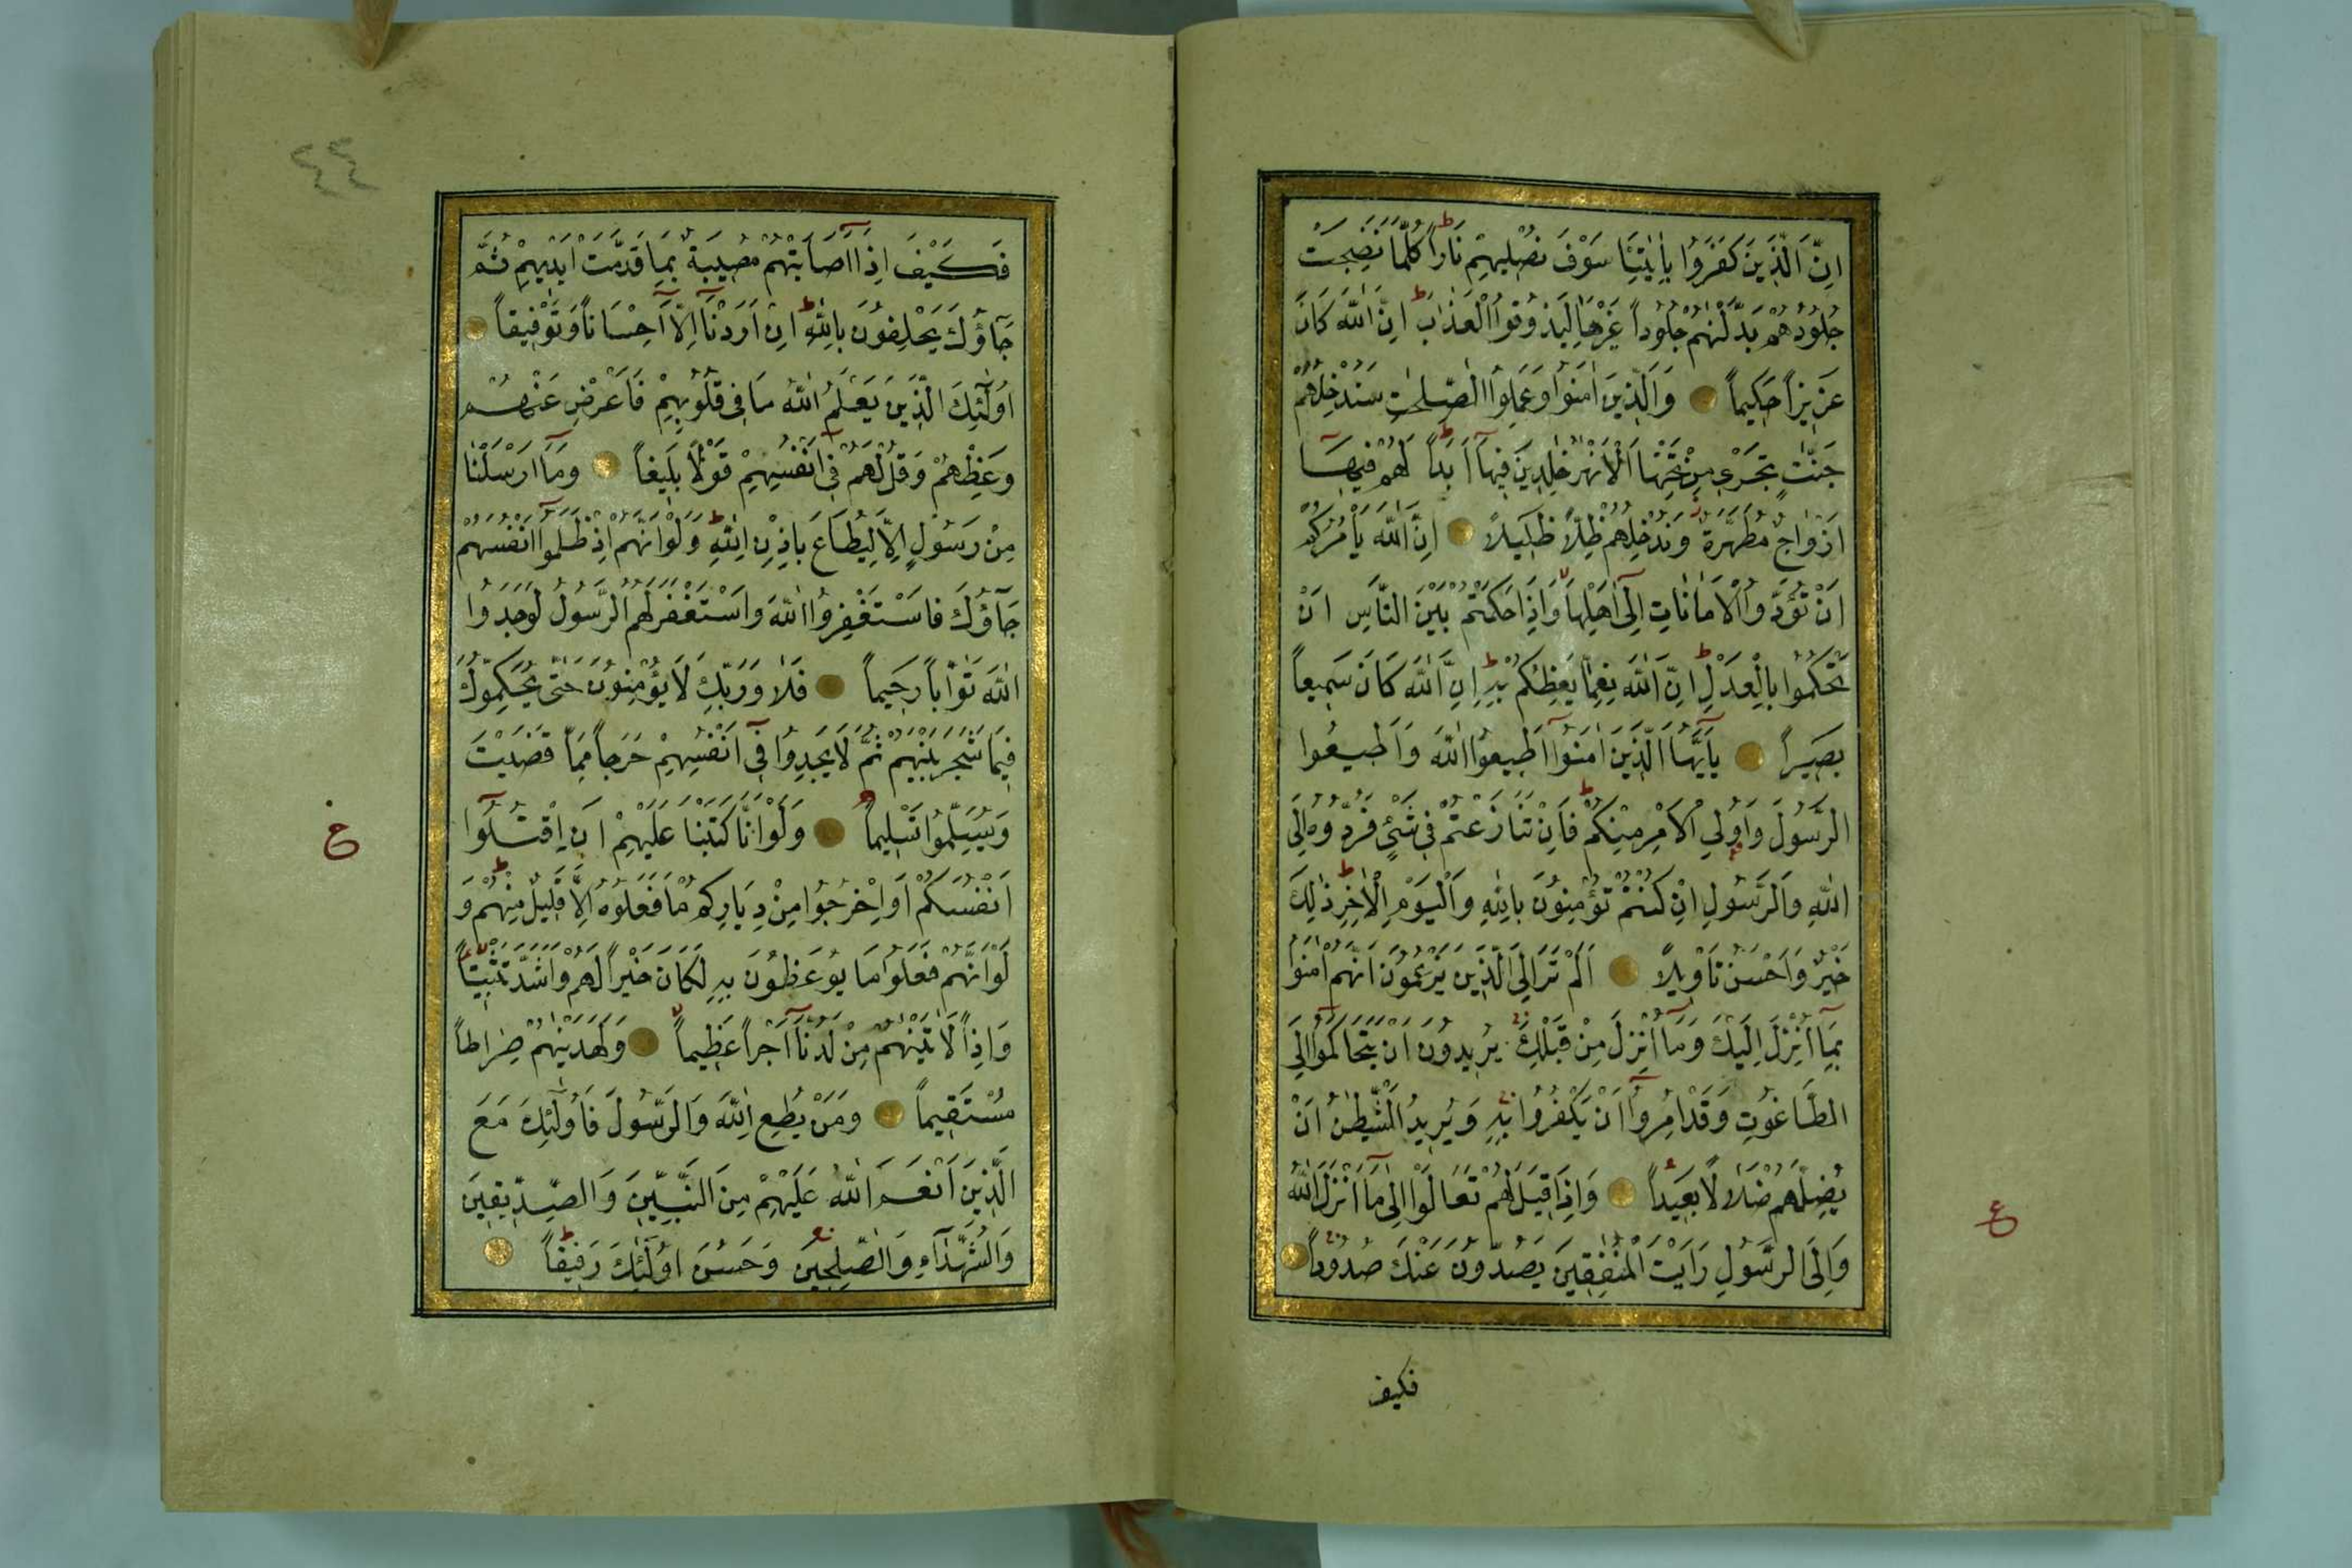 اِنَّ الَّذِينَ كَفَرُوا بِاٰيٰتِنَا سَوْفَ نُصْلِيهِمْ نَاراً كُلَّمَا نَضِجَتْ
جُلُودُهُمْ بَدَّلْنٰهُمْ جُلُوداً غَيْرَهَا لِيَذُوقُوا الْعَذَابَ اِنَّ اللّٰهَ كَانَ
عَزِيزاً حَكِيماً وَالَّذِينَ اٰمَنُوا وَعَمِلُوا الصّٰلِحٰتِ سَنُدْخِلُهُمْ
جَنّٰتٍ تَجْرِي مِنْ تَحْتِهَا الْاَنْهٰرُ خٰلِدِينَ فِيهَآ اَبَداً لَهُمْ فِيهَآ
اَزْوَاجٌ مُطَهَّرَةٌ وَنُدْخِلُهُمْ ظِلًّا ظَلِيلًا اِنَّ اللّٰهَ يَأْمُرُكُمْ
اَنْ تُؤَدُّوا الْاَمَانَاتِ اِلٰٓى اَهْلِهَا وَاِذَا حَكَمْتُمْ بَيْنَ النَّاسِ اَنْ
تَحْكُمُوا بِالْعَدْلِ اِنَّ اللّٰهَ نِعِمَّا يَعِظُكُمْ بِهِ اِنَّ اللّٰهَ كَانَ سَمِيعاً
بَصِيراً يَآاَيُّهَا الَّذِينَ اٰمَنُوآ اَطِيعُوا اللّٰهَ وَاَطِيعُوا
الرَّسُولَ وَاُولِي الْاَمْرِ مِنْكُمْ فَاِنْ تَنَازَعْتُمْ فِي شَيْئٍ فَرُدُّوهُ اِلَى
اللّٰهِ وَالرَّسُولِ اِنْ كُنْتُمْ تُؤْمِنُونَ بِاللّٰهِ وَالْيَوْمِ الْاٰخِرِ ذٰلِكَ
خَيْرٌ وَاَحْسَنُ تَأْوِيلًا اَلَمْ تَرَ اِلَى الَّذِينَ يَزْعُمُونَ اَنَّهُمْ اٰمَنُوا
بِمَآ اُنْزِلَ اِلَيْكَ وَمَآ اُنْزِلَ مِنْ قَبْلِكَ يُرِيدُونَ اَنْ يَتَحَاكَمُوآ اِلَى
الطَّاغُوتِ وَقَدْ اُمِرُوآ اَنْ يَكْفُرُوا بِهِ وَيُرِيدُ الشَّيْطٰنُ اَنْ
يُضِلَّهُمْ ضَلَالًا بَعِيداً وَاِذَا قِيلَ لَهُمْ تَعَالَوْا اِلٰى مَآ اَنْزَلَ اللّٰهُ
وَاِلَى الرَّسُولِ رَاَيْتَ الْمُنٰفِقِينَ يَصُدُّونَ عَنْكَ صُدُوداً
ع
فكيف
٤٤
فَكَيْفَ اِذَآ اَصَابَتْهُمْ مُصِيبَةٌ بِمَا قَدَّمَتْ اَيْدِيهِمْ ثُمَّ
جَآؤُكَ يَحْلِفُونَ بِاللّٰهِ اِنْ اَرَدْنَآ اِلَّآ اِحْسَاناً وَتَوْفِيقاً
اُولٰٓئِكَ الَّذِينَ يَعْلَمُ اللّٰهُ مَا فِي قُلُوبِهِمْ فَاَعْرِضْ عَنْهُمْ
وَعِظْهُمْ وَقُلْ لَهُمْ فِيٓ اَنْفُسِهِمْ قَوْلًا بَلِيغاً وَمَآ اَرْسَلْنَا
مِنْ رَسُولٍ اِلَّا لِيُطَاعَ بِاِذْنِ اللّٰهِ وَلَوْ اَنَّهُمْ اِذْ ظَلَمُوآ اَنْفُسَهُمْ
جَآؤُكَ فَاسْتَغْفَرُوا اللّٰهَ وَاسْتَغْفَرَ لَهُمُ الرَّسُولُ لَوَجَدُوا
اللّٰهَ تَوَّاباً رَحِيماً فَلَا وَرَبِّكَ لَا يُؤْمِنُونَ حَتّٰى يُحَكِّمُوكَ
فِيمَا شَجَرَ بَيْنَهُمْ ثُمَّ لَا يَجِدُوا فِيٓ اَنْفُسِهِمْ حَرَجاً مِمَّا قَضَيْتَ
وَيُسَلِّمُوا تَسْلِيماً وَلَوْ اَنَّا كَتَبْنَا عَلَيْهِمْ اَنِ اقْتُلُوآ
اَنْفُسَكُمْ اَوِ اخْرُجُوا مِنْ دِيَارِكُمْ مَا فَعَلُوهُ اِلَّا قَلِيلٌ مِنْهُمْ وَ
لَوْ اَنَّهُمْ فَعَلُوا مَا يُوعَظُونَ بِهِ لَكَانَ خَيْراً لَهُمْ وَاَشَدَّ تَثْبِيتاً
وَاِذاً لَاٰتَيْنٰهُمْ مِنْ لَدُنَّآ اَجْراً عَظِيماً وَلَهَدَيْنٰهُمْ صِرَاطاً
مُسْتَقِيماً وَمَنْ يُطِعِ اللّٰهَ وَالرَّسُولَ فَاُولٰٓئِكَ مَعَ
الَّذِينَ اَنْعَمَ اللّٰهُ عَلَيْهِمْ مِنَ النَّبِيِّينَ وَالصِّدِّيقِينَ
وَالشُّهَدَآءِ وَالصّٰلِحِينَ وَحَسُنَ اُولٰٓئِكَ رَفِيقاً